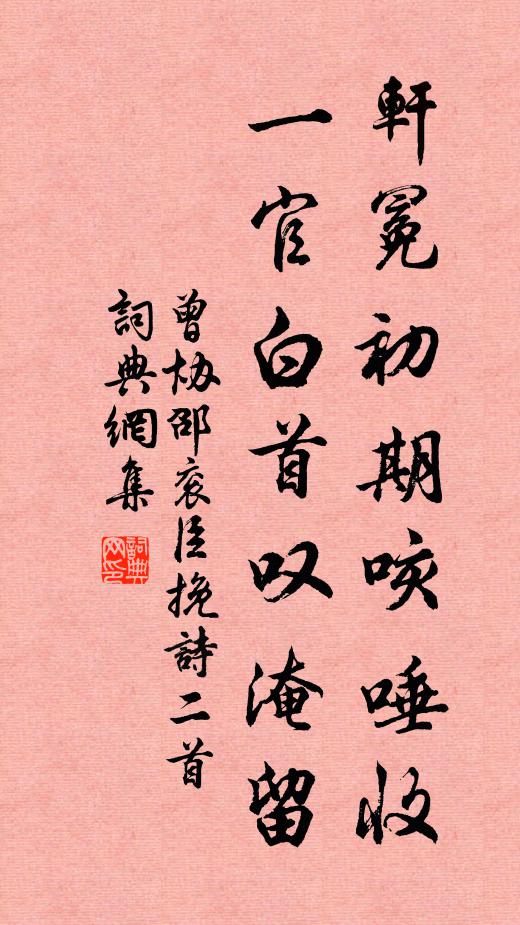 軒冕初期咳唾收
一官白首叹淹留
曾協邵衮臣挽詩二首
詞典網集
詞典网印